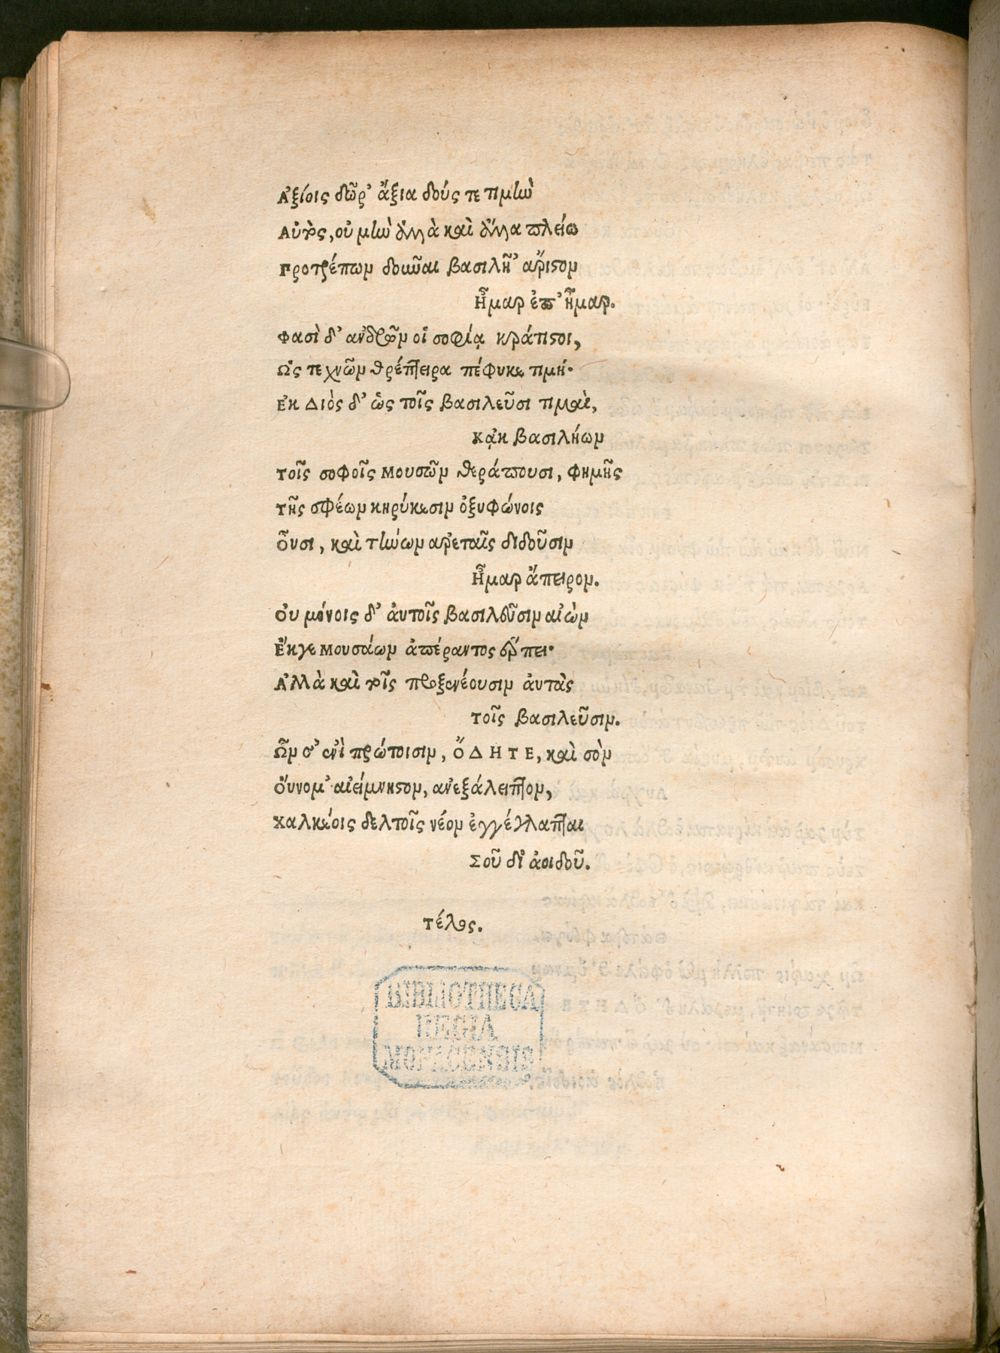 Ἀξίοις δῶρ' ἄξια δούς τε τιμὴν
Αὐτὸς, οὐ μὴν ἀλλὰ καὶ ἄλλα πλείω
Προτρέπων δοιῶαι βασιλῆ' ἄριστον
Ἦμαρ ἐπ' ἦμαρ.
Φασὶ δ' ἀνδρῶν οἱ σοφίᾳ κράτιστοι,
Ὡς τεχνῶν θρέπτειρα πέφυκε τιμή·
Ἐκ Διὸς δ' ὡς τοῖς βασιλεῦσι τιμαὶ,
Κᾀκ βασιλήων
Τοῖς σοφοῖς μουσῶν θεράπουσι, φημῆς
Τῆς σφέων κηρύκεσιν ὀξυφώνοις
Οὖσι, καὶ τίνων ἀρεταῖς διδοῦσιν
Ἦμαρ ἄπειρον.
Οὐ μόνοις δ' ἀυτοῖς βασιλεῦσιν αἰὼν
Ἔκγε μουσάων ἀπέραντος ἕρπει·
Ἀλλὰ καὶ τοῖς προξενέουσιν ἀυτὰς
Τοῖς βασιλεῦσιν.
Ὧν σ' ἐνὶ πρώτοισιν, ὍΔΗΤΕ, καὶ σὸν
Οὔνομ' αἰείμνηστον, ἀνεξάλειπτον,
Χαλκέοις δελτοῖς νέον ἐγγέγλαπται
Σοῦ δι' ἀοιδοῦ.
τέλος.
BIBLIOTHECA
REGIA
MONACENSIS